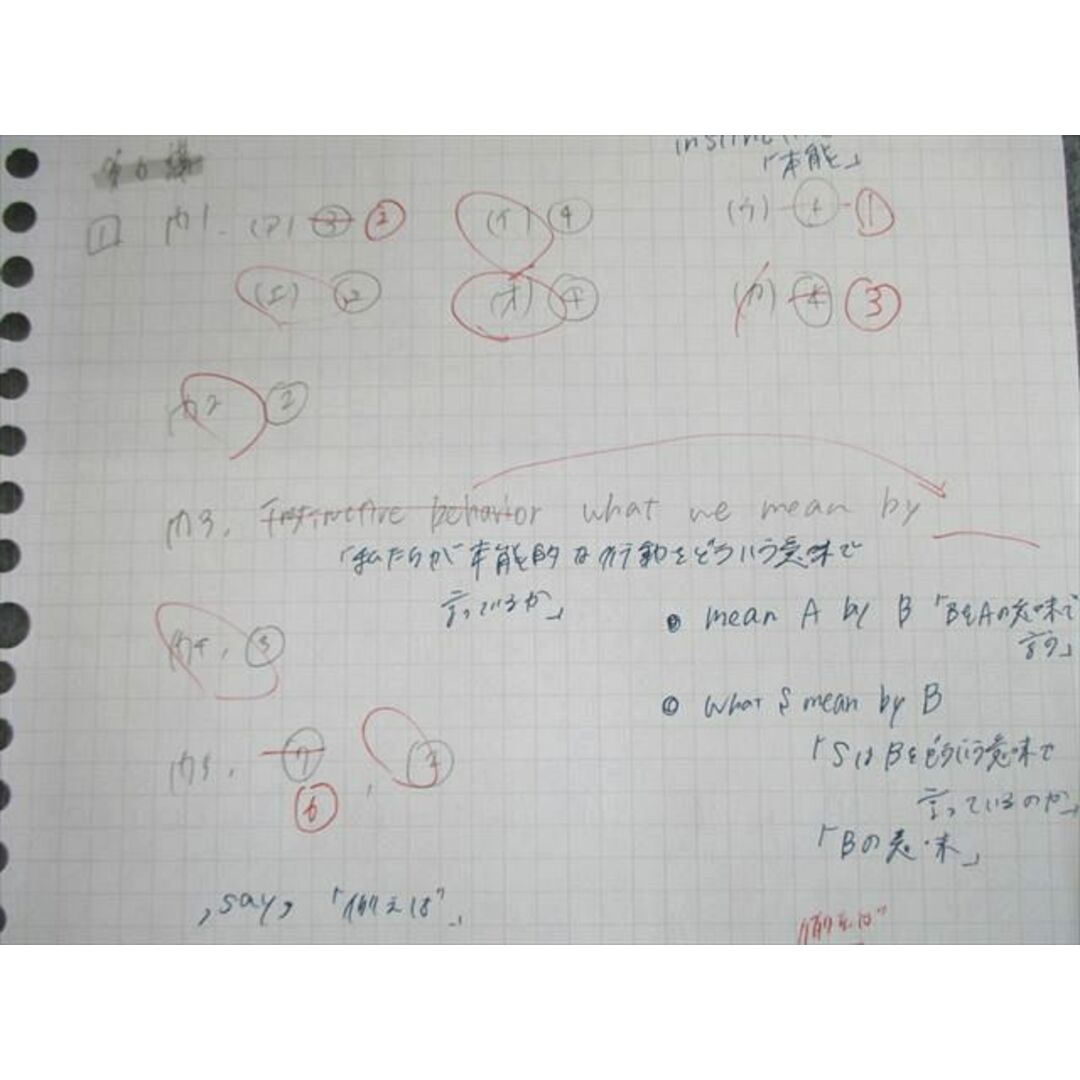 「本能」
1 問1. (ア) ③ ② (イ) ④ (ウ) ① 
(エ) ② (オ) ④ (カ) ④ ③
問2 ②
問3. Instinctive behavior what we mean by
「私たちが本能的な行動をどういう意味で
言っているか」
問4. ③
問5. ⑦ ⑥ ,
, say, 「例えば」
mean A by B 「BをAの意味で
言う」
what S mean by B
「SはBをどういう意味で
言っているのか」
「Bの意味」
例えば